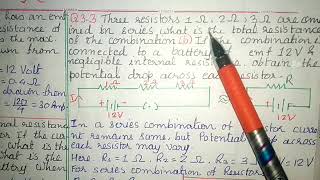 has an em
resistance of
is the max
wn from
12 Volt
= 0.4
drawn from
120/0.4 = 30 Amp.
resistor
If the curr
hat is the
what is the
battery when
Q3.3 Three resistors 1 Ω, 2 Ω, 3 Ω are com
ned in series what is the total resistance
of the combination (b) If combination
connected to a battery emf 12 V &
negligible internal resis obtain the
potential drop across each resistor.
R
12V
12V
In a series combination of resistor curren
remains same, but Potential drop across
each resistor may vary.
Here, R₁ = 1 Ω, R₂ = 2 Ω, R₃ = V = 12 V
For series combination of Resistor